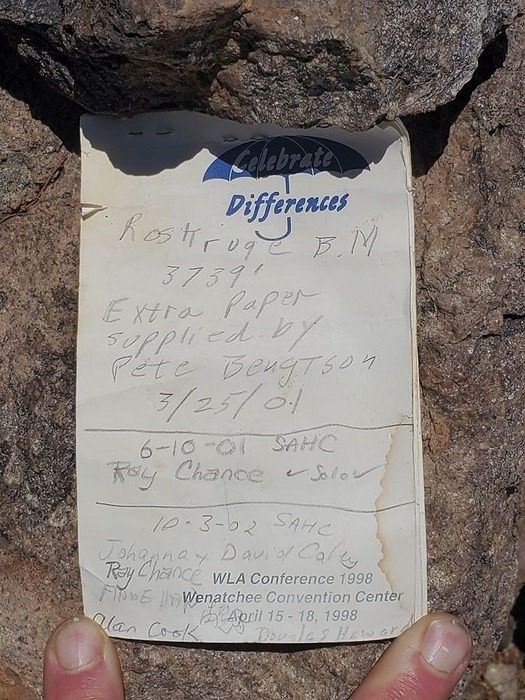 Celebrate
Differences
Roskruge B.M
3739'
Extra Paper
supplied by
Pete Bengtson
3/25/01
6-10-01 SAHC
Ray Chance ✓ Solo ✓
10-3-02 SAHC
Johanna y David Caley
Ray Chance
WLA Conference 1998
Wenatchee Convention Center
April 15 - 18, 1998
Alan Cook
Douglas Howard